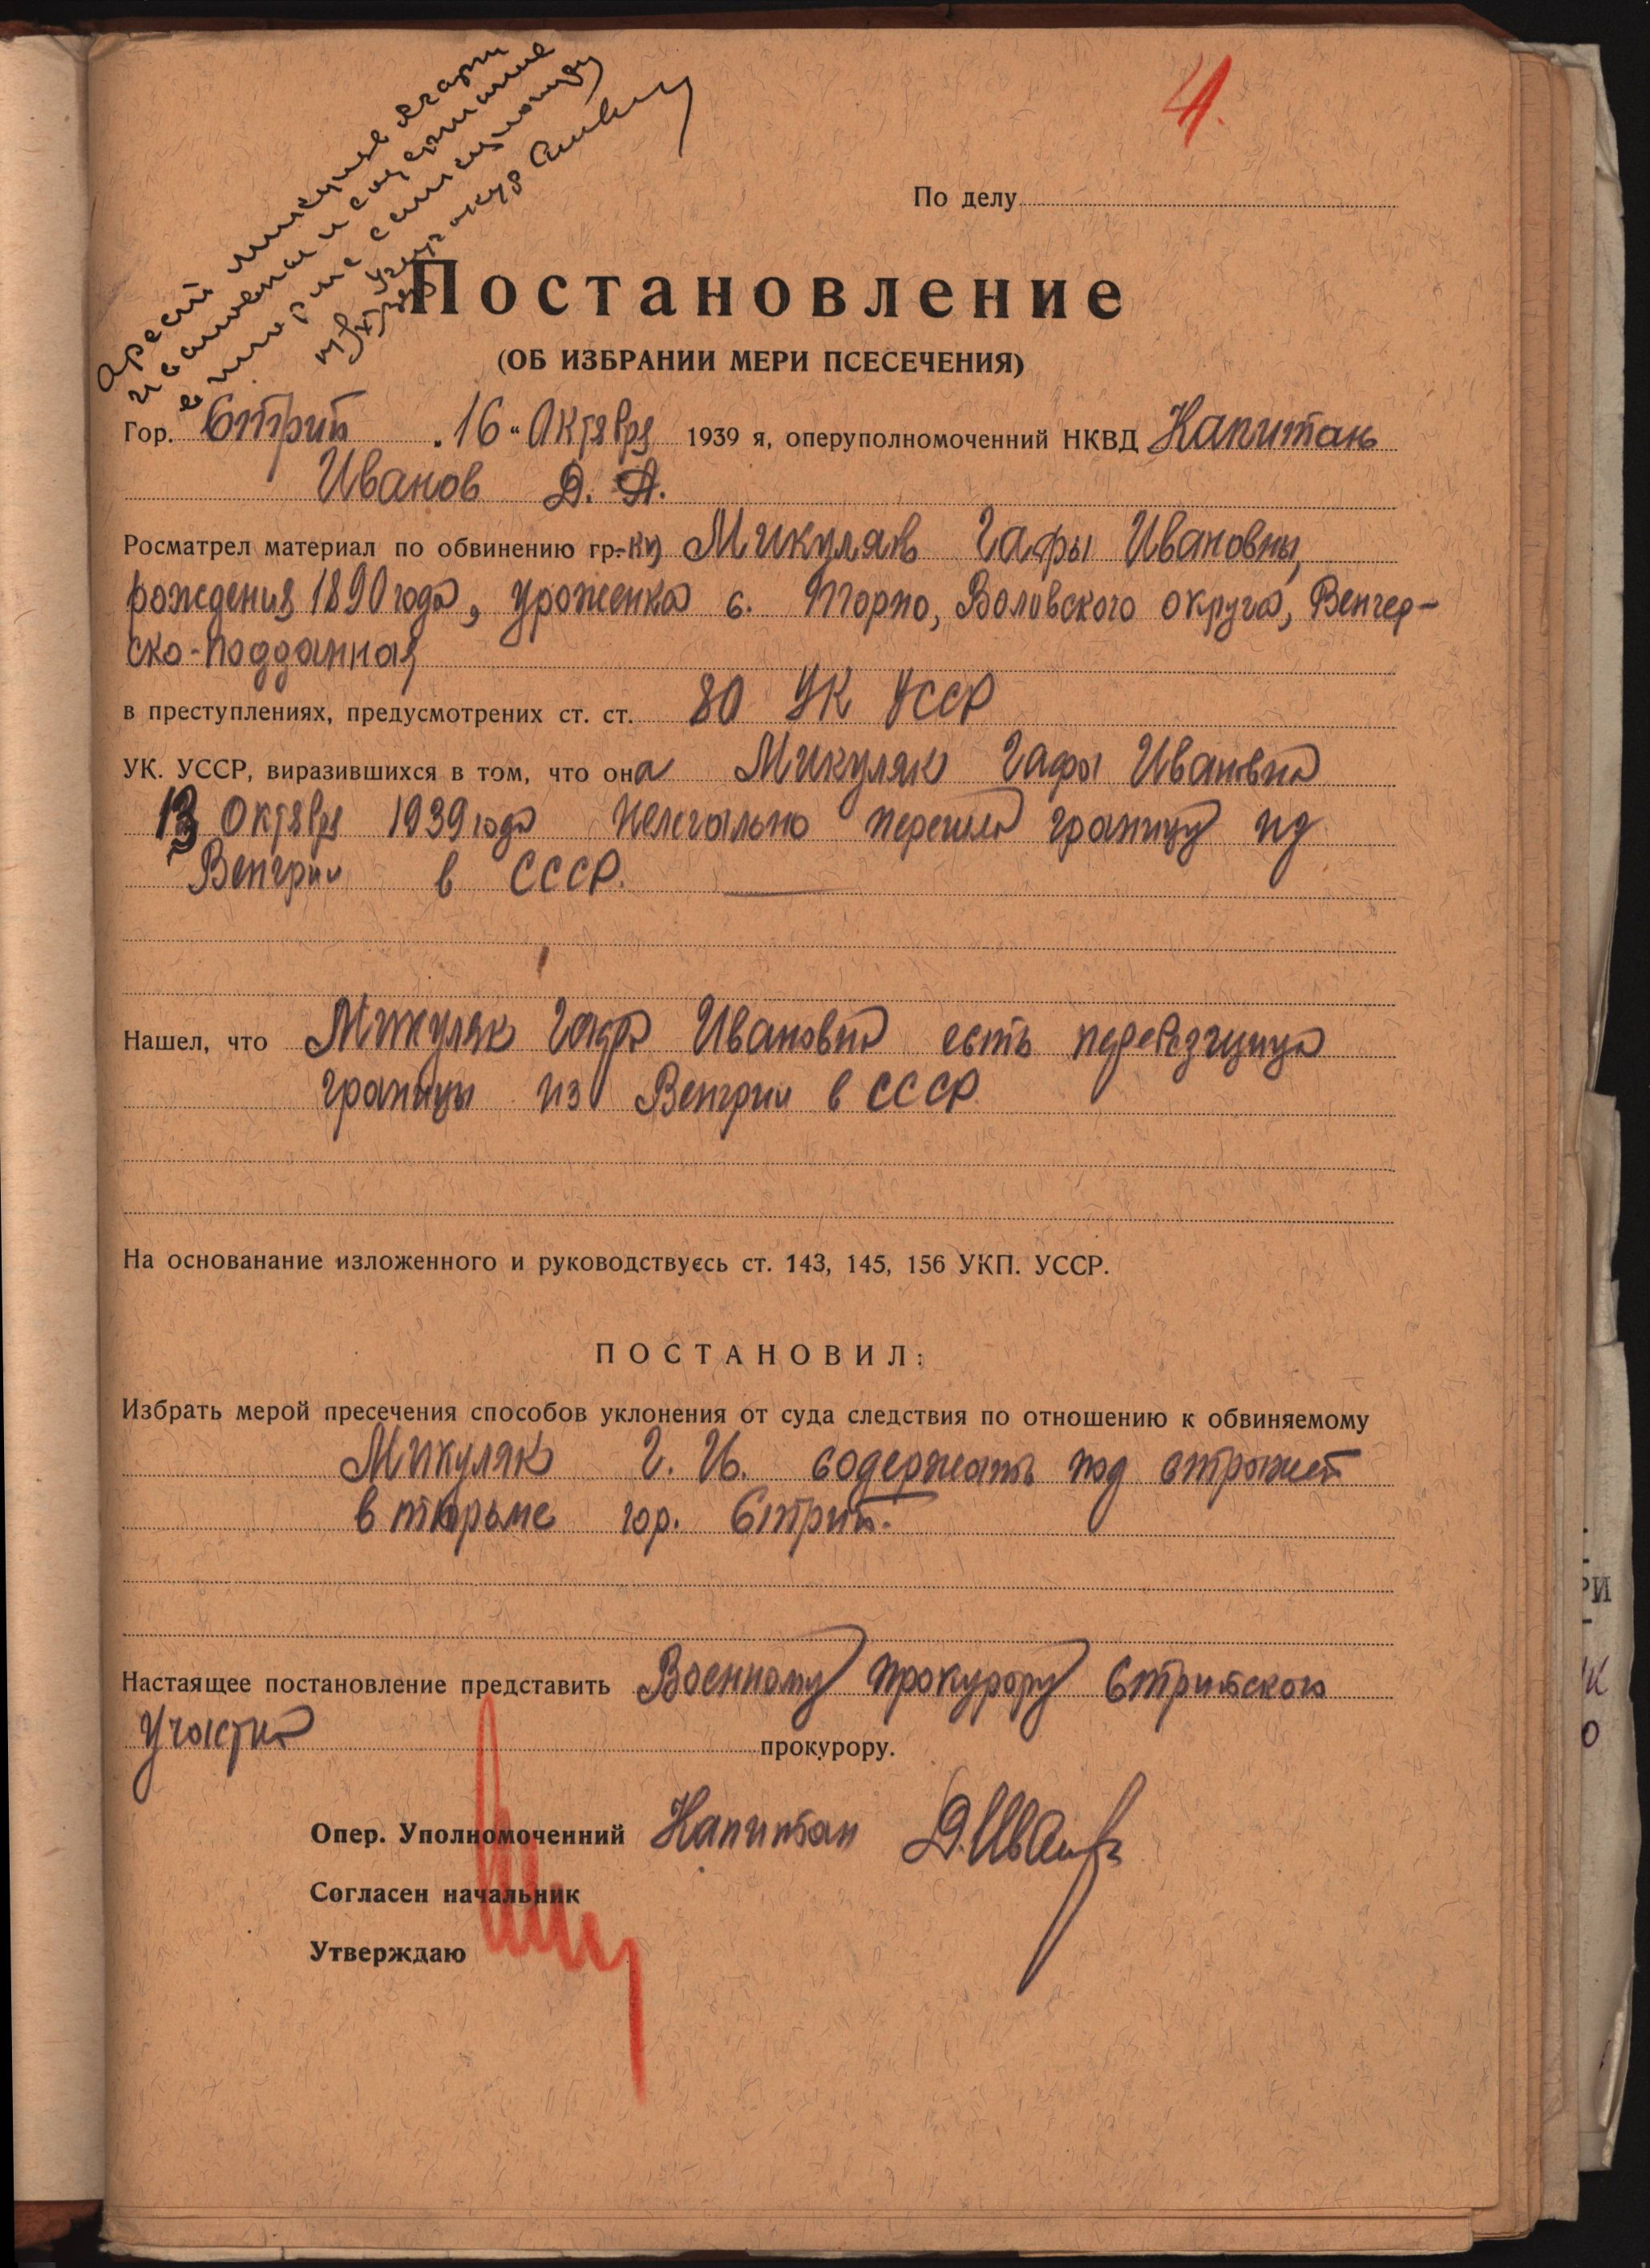 4.
Арест
и содержание
По делу
Постановление
(ОБ ИЗБРАНИИ МЕРИ ПСЕСЕЧЕНИЯ)
Гор. Стрий „16" Октября 1939 я, оперуполномоченний НКВД Капитан
Иванов Д. А.
Росматрел материал по обвинению гр-ку Микуляк Гафы Ивановны,
рождения 1890 года, уроженка с. Торпо, Воловского округа, Венгер-
ско-подданная
в преступлениях, предусмотрених ст. ст. 80 УК УССР
УК. УССР, виразившихся в том, что она Микуляк Гафы Ивановна
13 Октября 1939 года нелегально перешла границу из
Венгрии в СССР.
Нашел, что Микуляк Гафа Ивановна есть
границы из Венгрии в СССР
На основанание изложенного и руководствуєсь ст. 143, 145, 156 УКП. УССР.
ПОСТАНОВИЛ:
Избрать мерой пресечения способов уклонения от суда следствия по отношению к обвиняемому
Микуляк Г. И. содержать под стражей
в тюрьме гор. Стрий.
Настаящее постановление представить Военному прокурору Стрийского
участка прокурору.
Опер. Уполномоченний Капитан Д.Иванов
Согласен начальник
Утверждаю